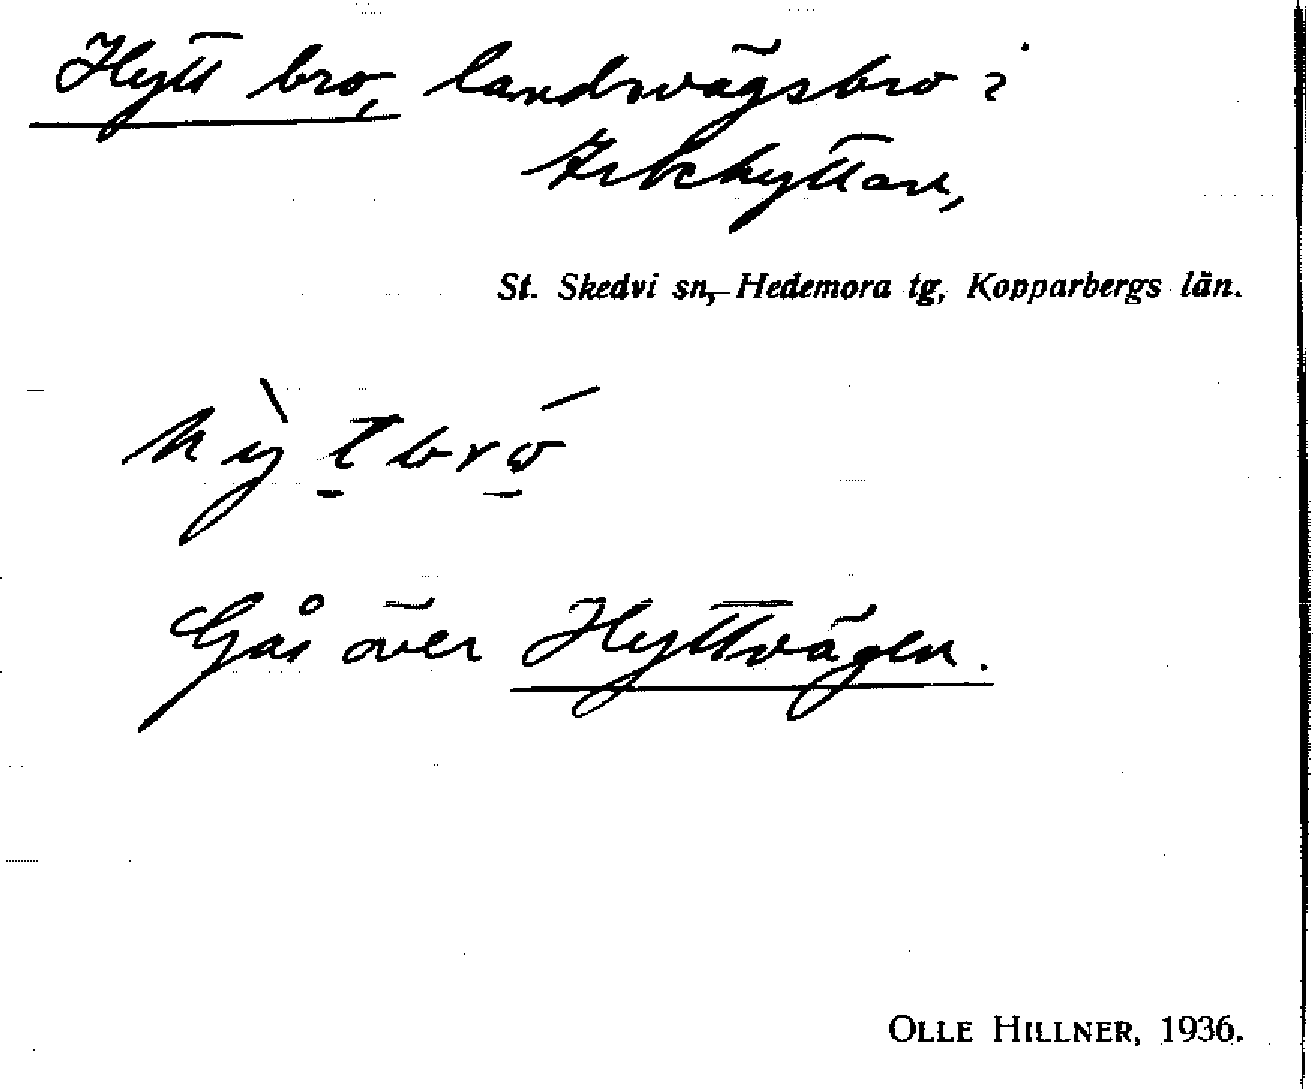 Hytt bro, landsvägsbro i
Arkhyttan,
St. Skedvi sn, Hedemora tg, Kopparbergs län.
hỳt̲bró̲
Går över Hyttvägen.
OLLE HILLNER, 1936.